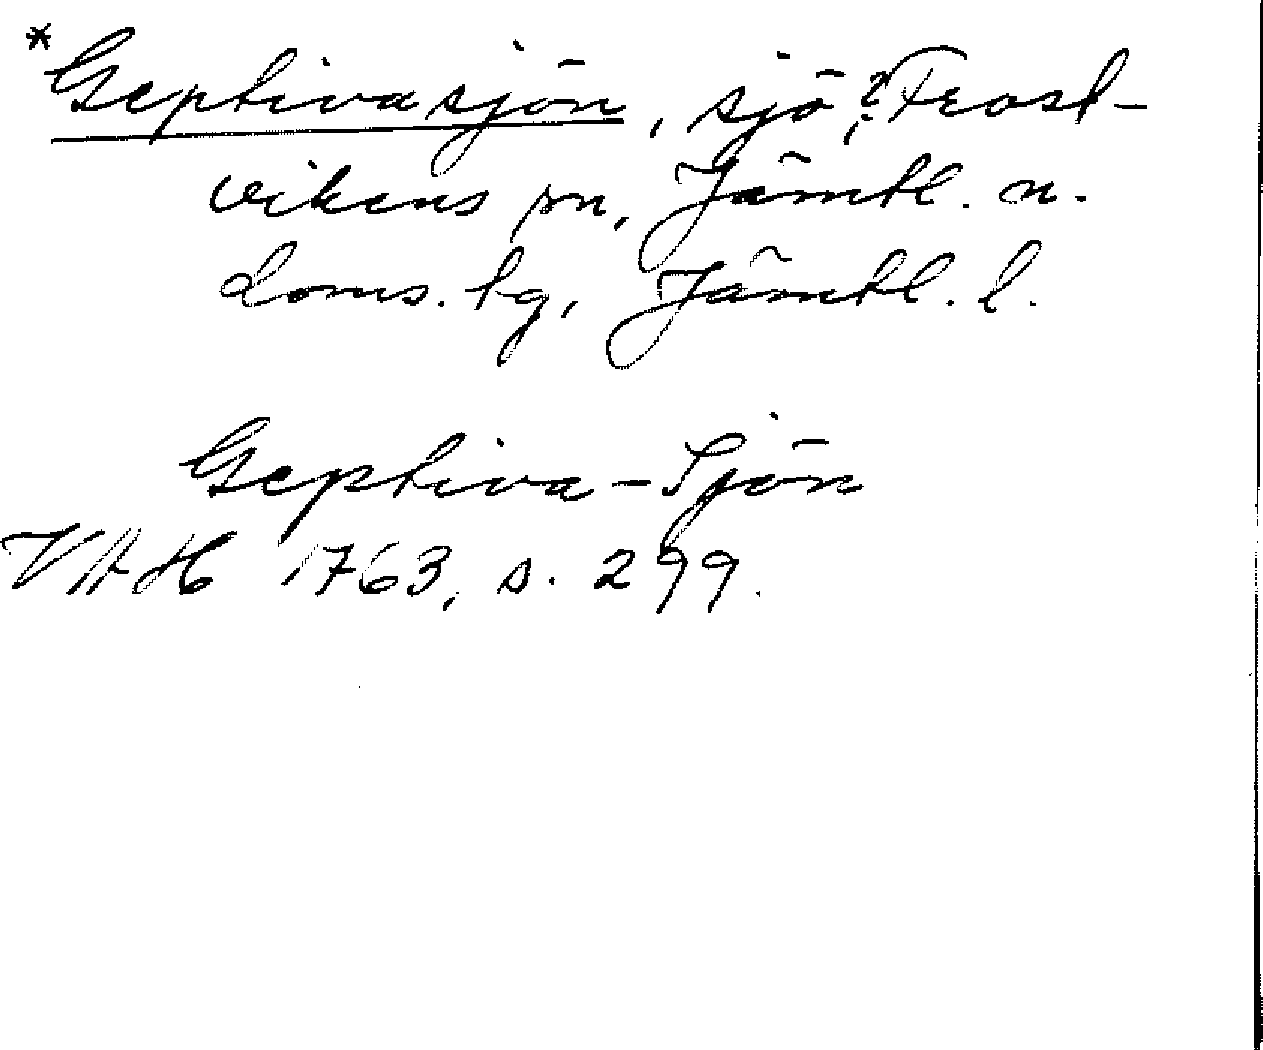 *Geptivasjön, sjö, ? Frost-
vikens sn, Jämtl. n.
doms. lg, Jämtl. l.
Geptiva-Sjön
VAH 1763, s. 299.